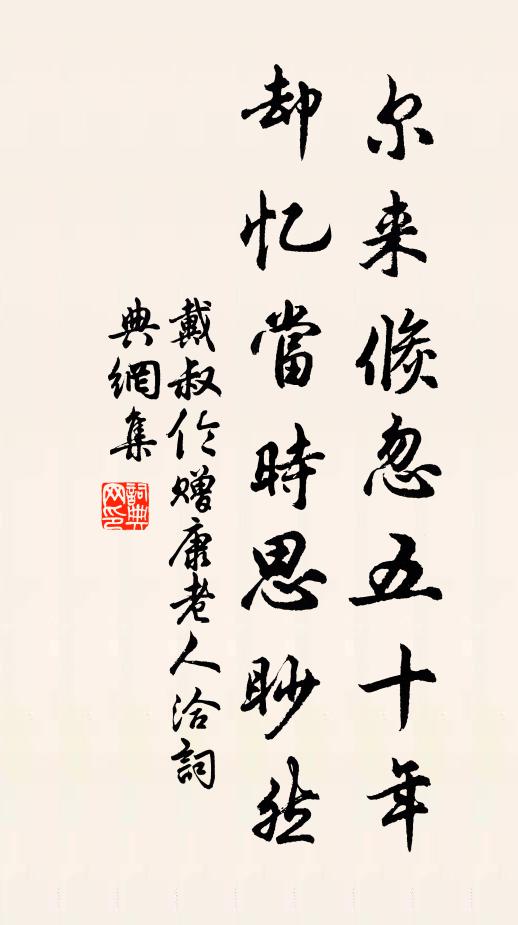 尔来倏忽五十年
却忆當時思眇然
戴叔伦赠康老人洽詞
典網集
詞典网印